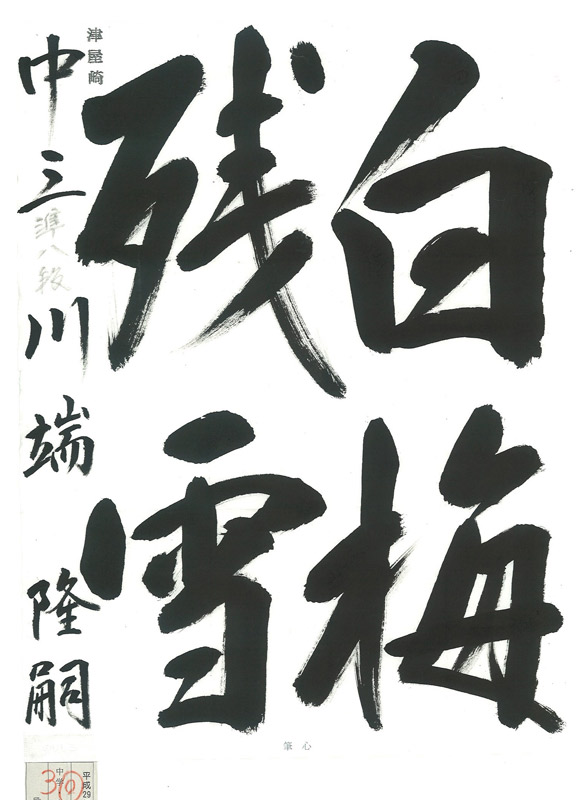 白梅
残雪
津屋崎
中三 川端隆嗣
準八段
心筆
平成29
中学
3